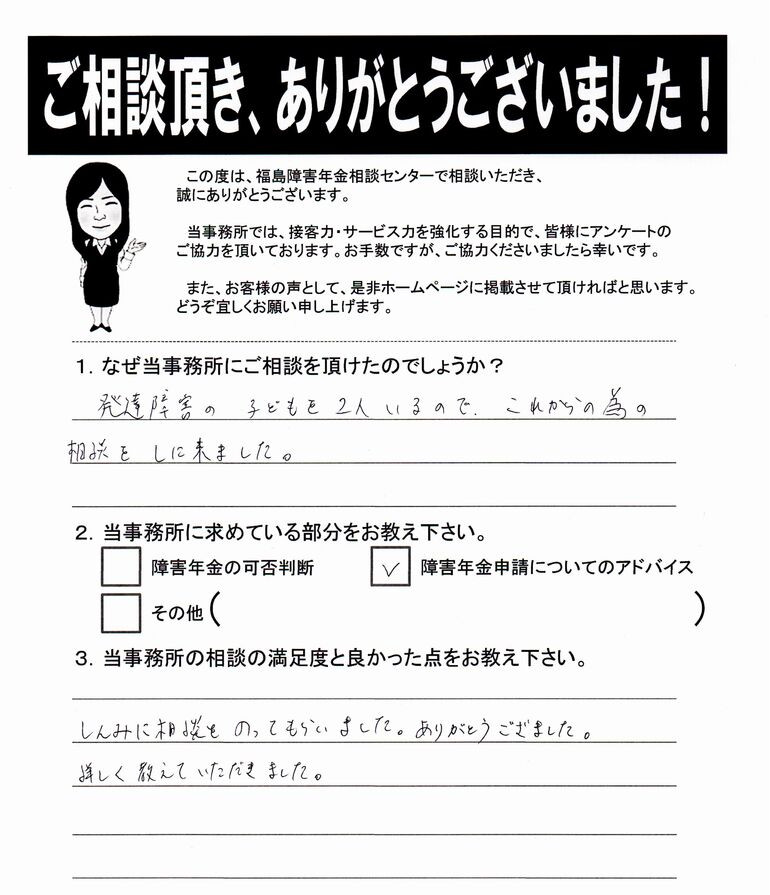 ご相談頂き、ありがとうございました!
この度は、福島障害年金相談センターで相談いただき、
誠にありがとうございます。
当事務所では、接客力・サービス力を強化する目的で、皆様にアンケートの
ご協力を頂いております。お手数ですが、ご協力くださいましたら幸いです。
また、お客様の声として、是非ホームページに掲載させて頂ければと思います。
どうぞ宜しくお願い申し上げます。
1. なぜ当事務所にご相談を頂けたのでしょうか?
発達障害の 子どもを2人いるので、これからの為の
相談を しに来ました。
2. 当事務所に求めている部分をお教え下さい。
障害年金の可否判断 ✓ 障害年金申請についてのアドバイス
その他( )
3. 当事務所の相談の満足度と良かった点をお教え下さい。
しんみに相談をのってもらいました。ありがとうござました。
詳しく教えていただきました。